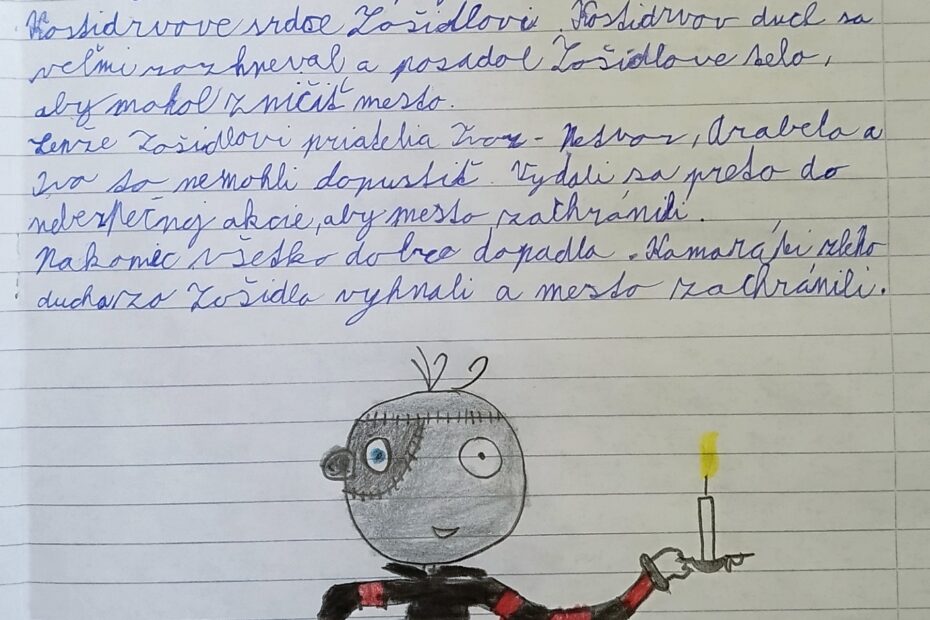 Kostidrvove srdce Zošidlovi. Kostidrvov duch sa
veľmi rozhneval a posadol Zošidlove telo,
aby mohol zničiť mesto.
Lenže Zošidlovi priatelia Tvor-Netvor, Arabela a
Iva to nemohli dopustiť. Vydali sa preto do
nebezpečnej akcie, aby mesto zachránili.
Nakoniec všetko dobre dopadlo. Kamaráti zlého
ducha zo Zošidla vyhnali a mesto zachránili.